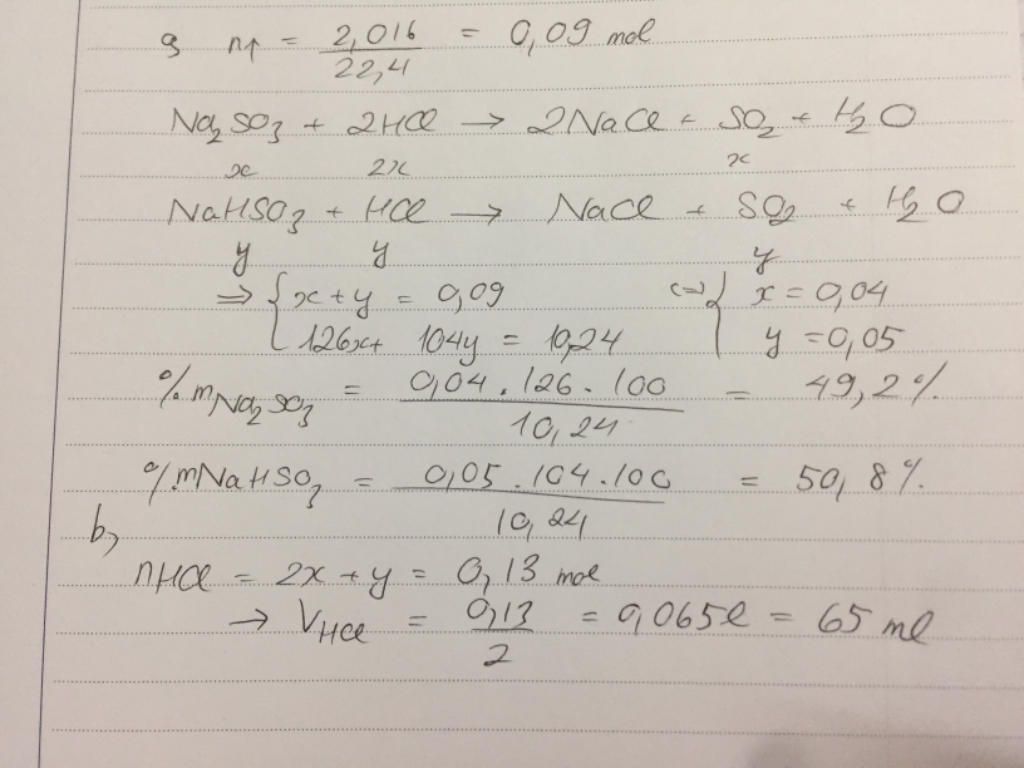 a, n↑ = 2,016 / 22,4 = 0,09 mol
Na2SO3 + 2HCl → 2NaCl + SO2 + H2O
x 2x x
NaHSO3 + HCl → NaCl + SO2 + H2O
y y y
⇒ { x + y = 0,09 (=) { x = 0,04
126x + 104y = 10,24 y = 0,05
%mNa2SO3 = 0,04 . 126 . 100 / 10,24 = 49,2%
%mNaHSO3 = 0,05 . 104 . 100 / 10,24 = 50,8%
b,
nHCl = 2x + y = 0,13 mol
→ VHCl = 0,13 / 2 = 0,065l = 65 ml